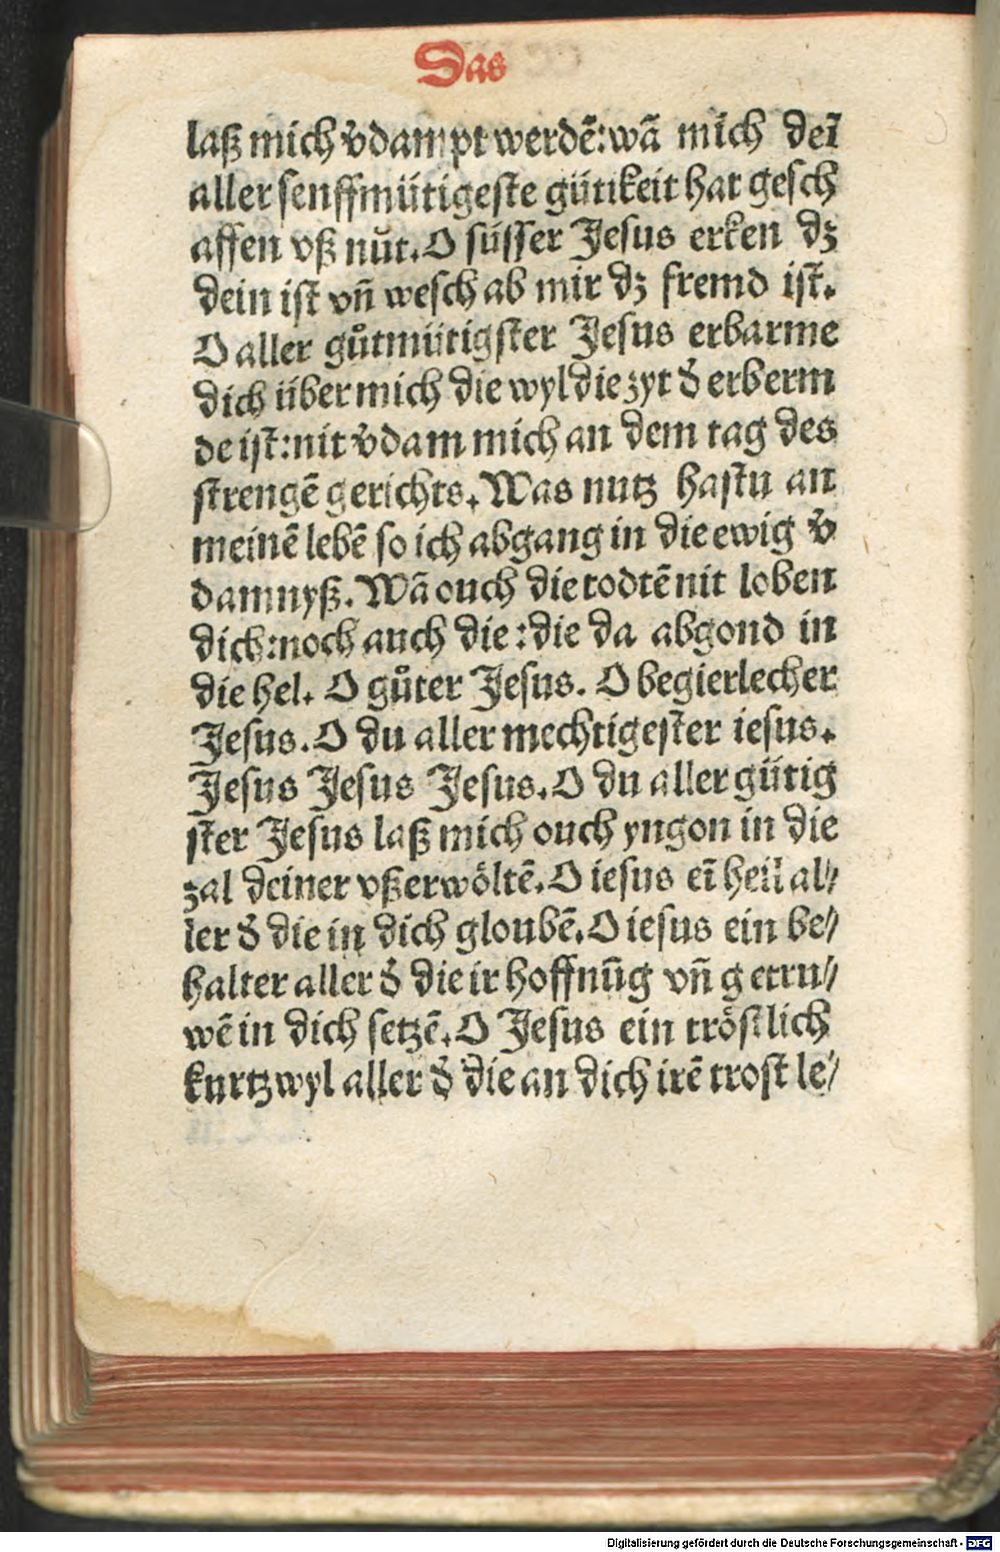 Das
laß mich v̄dampt werdē:wā mich deī
aller senffmütigeste gütikeit hat gesch
affen vß nüt. O süsser Jesus erken dz
dein ist vn̄ wesch ab mir dz fremd ist.
O aller gůtmütigster Jesus erbarme
dich über mich die wyl die zyt d̄ erberm
de ist:nit v̄dam mich an dem tag des
strengē gerichts. Was nutz hastu an
meinē lebē so ich abgang in die ewig v̄
damnyß. Wā ouch die todtē nit loben
dich:noch auch die:die da abgond in
die hel. O gůter Jesus. O begierlecher
Jesus. O du aller mechtigester iesus.
Jesus Jesus Jesus. O du aller gütig
ster Jesus laß mich ouch yngon in die
zal deiner vßerwöltē. O iesus eī heil al//
ler d̄ die in dich gloubē. O iesus ein be//
halter aller d̄ die ir hoffnūg vn̄ getru//
wē in dich setzē. O Jesus ein tröstlich
kurtzwyl aller d̄ die an dich irē trost le//
Digitalisierung gefördert durch die Deutsche Forschungsgemeinschaft - DFG